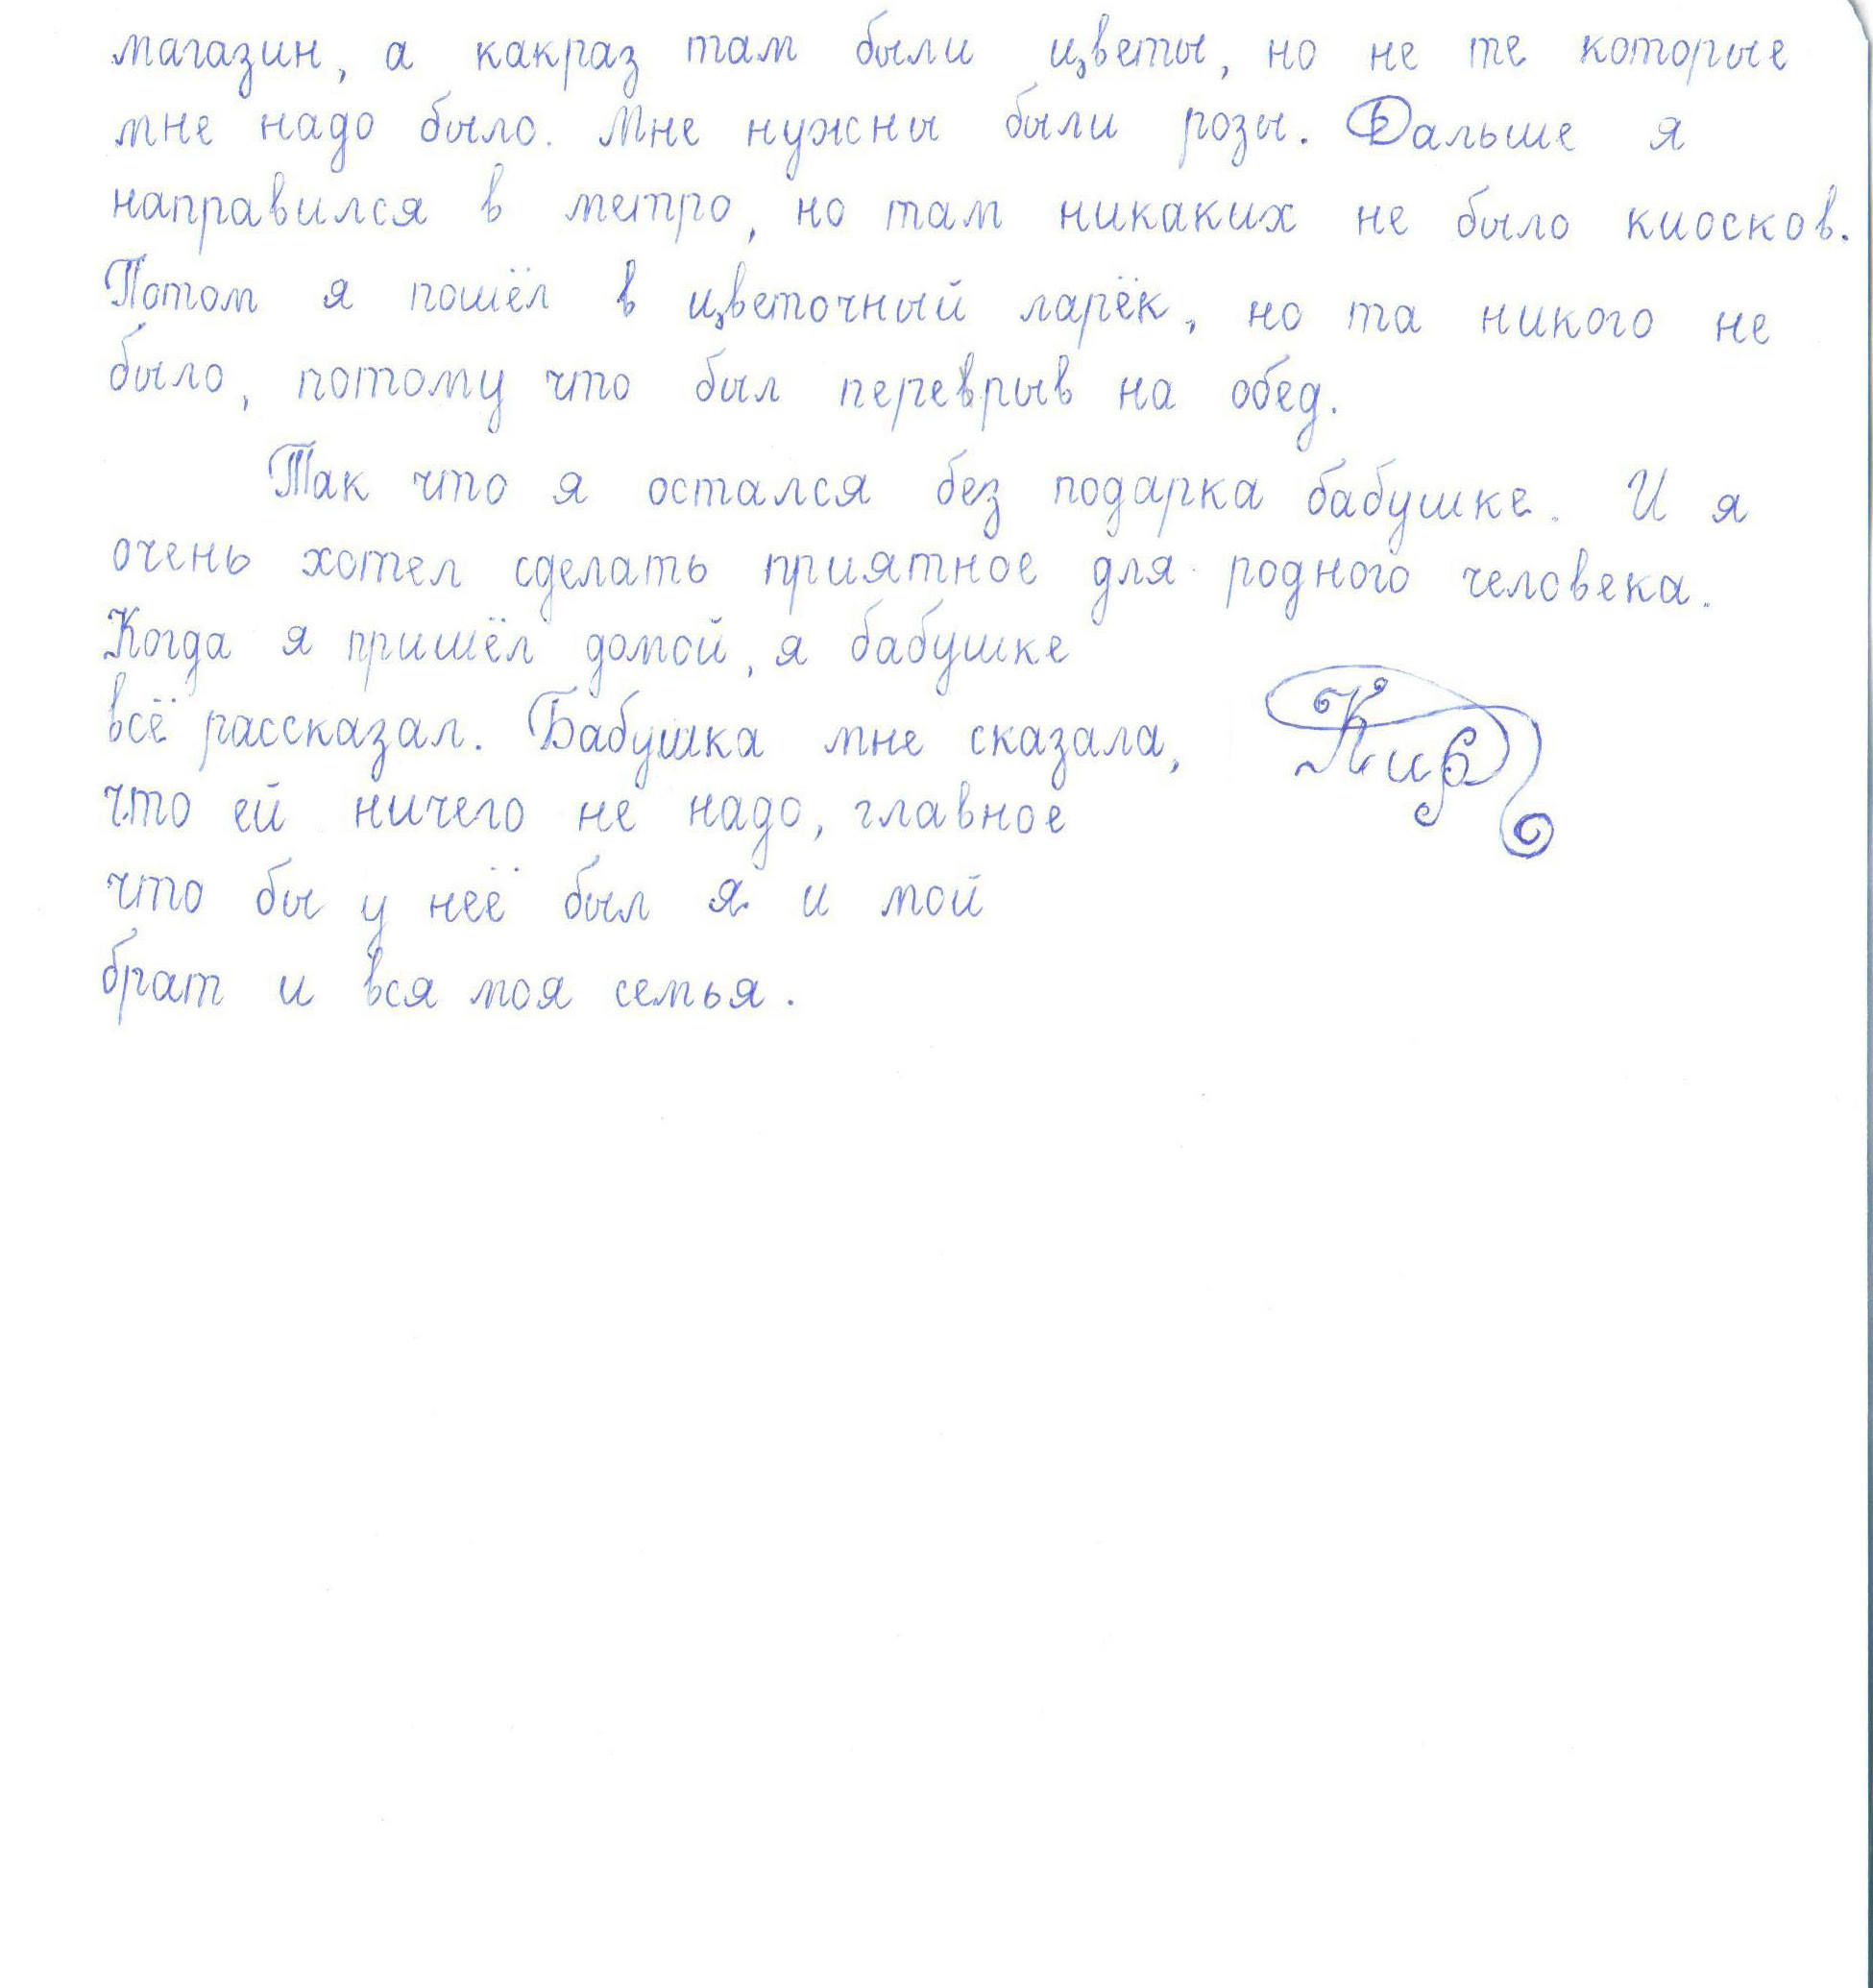 магазин, а какраз там были цветы, но не те которые
мне надо было. Мне нужны были розы. Дальше я
направился в метро, но там никаких не было киосков.
Потом я пошёл в цветочный ларёк, но та никого не
было, потому что был переврыв на обед.
Так что я остался без подарка бабушке. И я
очень хотел сделать приятное для родного человека.
Когда я пришёл домой, я бабушке
всё рассказал. Бабушка мне сказала,
что ей ничего не надо, главное
что бы у неё был я и мой
брат и вся моя семья.